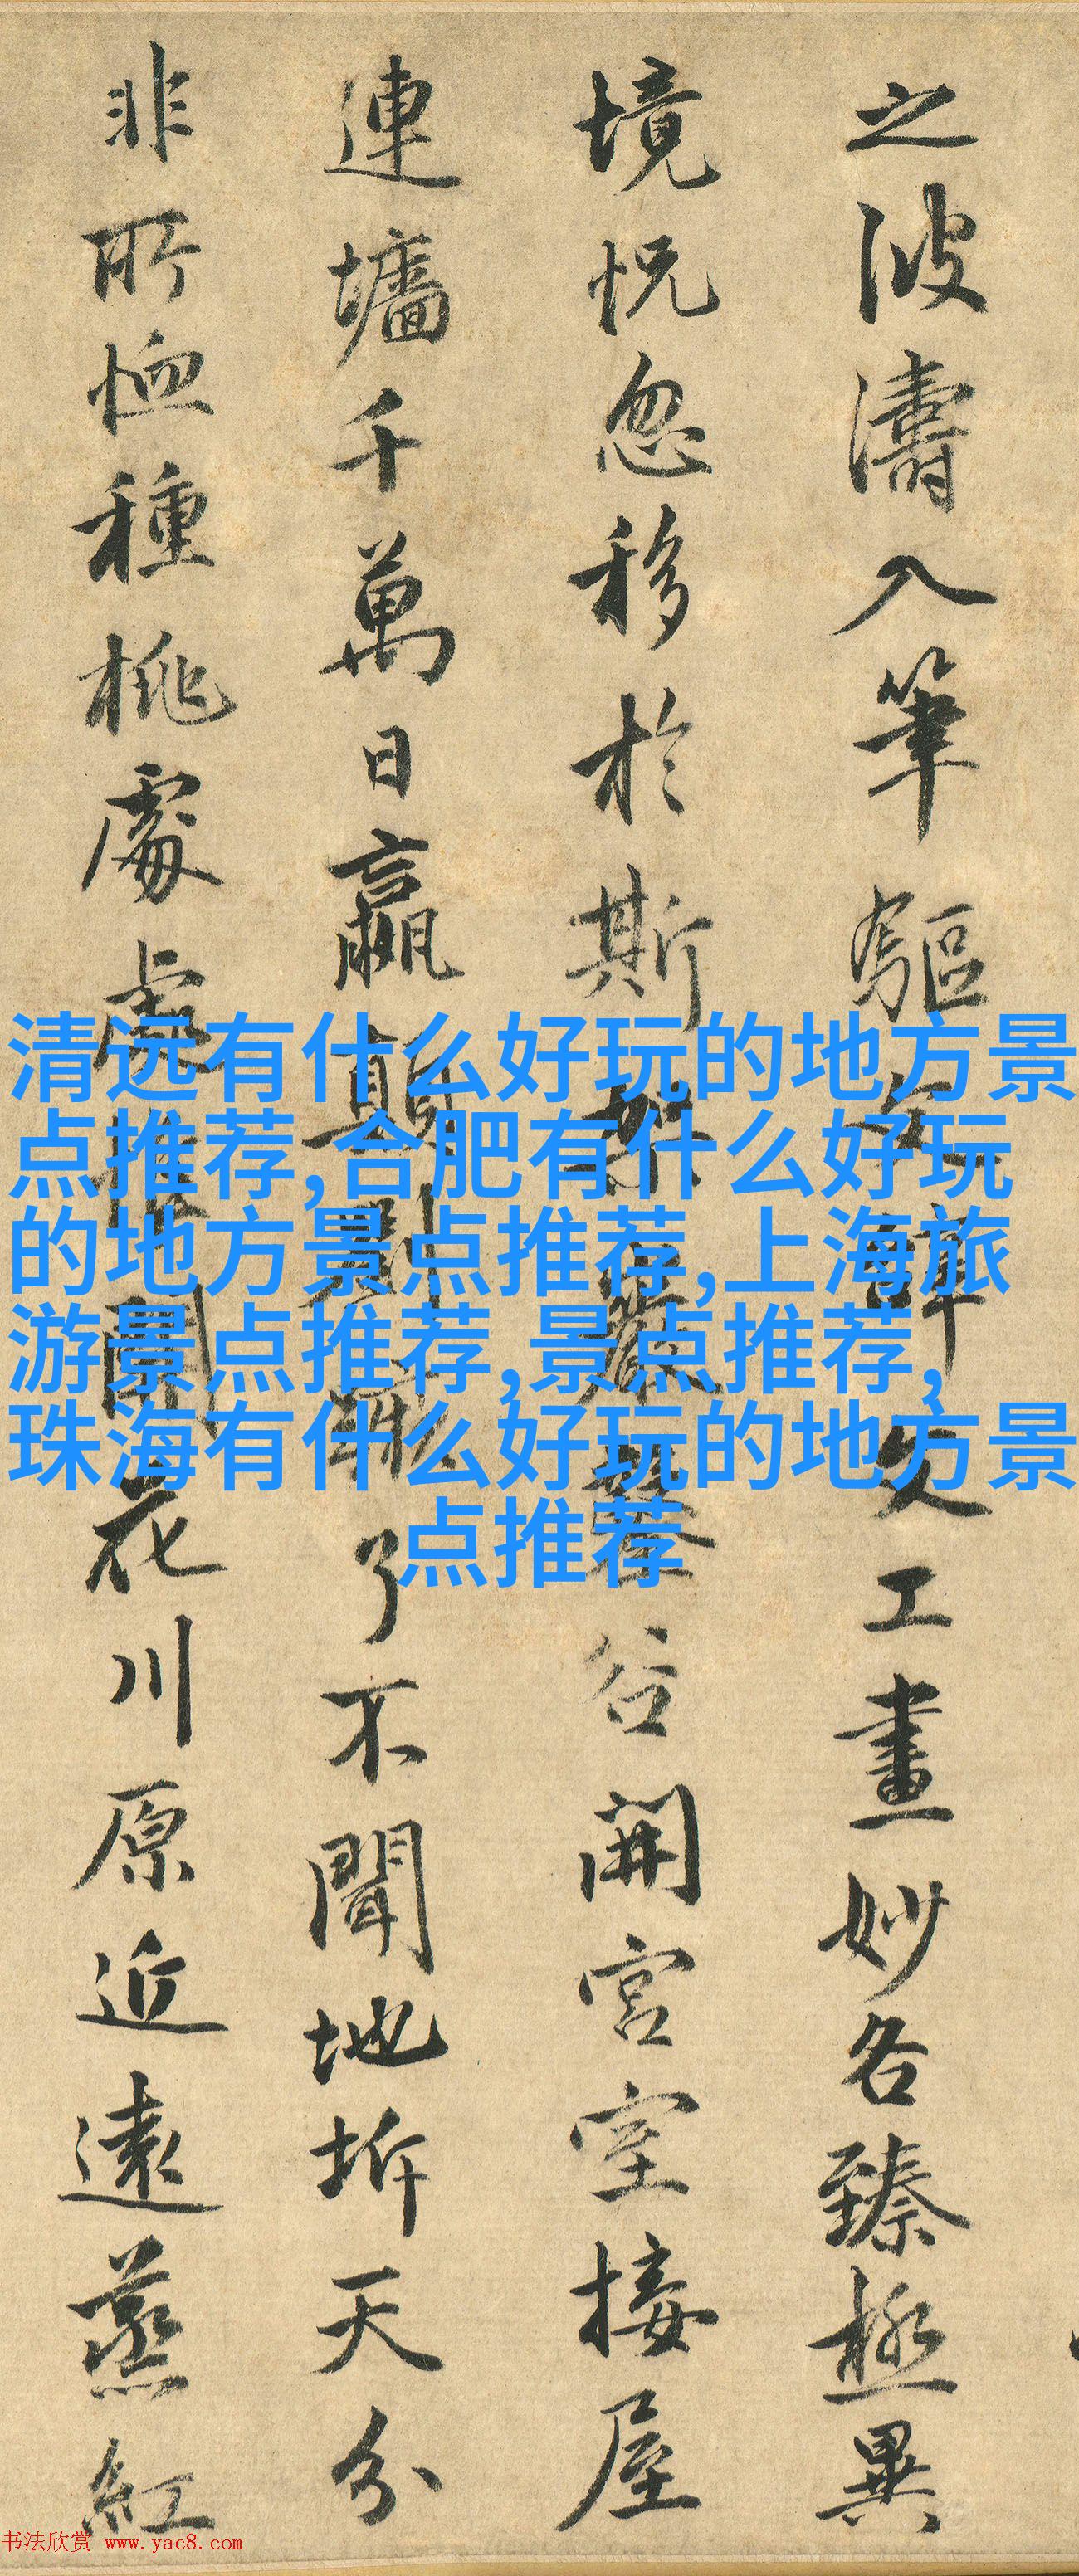 之波濤入筆驅文辭文工畫妙各臻極異
境怳忽移於斯架巖鑿谷開宮室接屋
連墻千萬日嬴顛劉蹶了不聞地坼天分
非所恤種桃處處惟開花川原近遠蒸紅
清远有什么好玩的地方景
点推荐,合肥有什么好玩
的地方景点推荐,上海旅
游景点推荐,景点推荐,
珠海有什么好玩的地方景
点推荐
书法欣赏 www.yac8.com